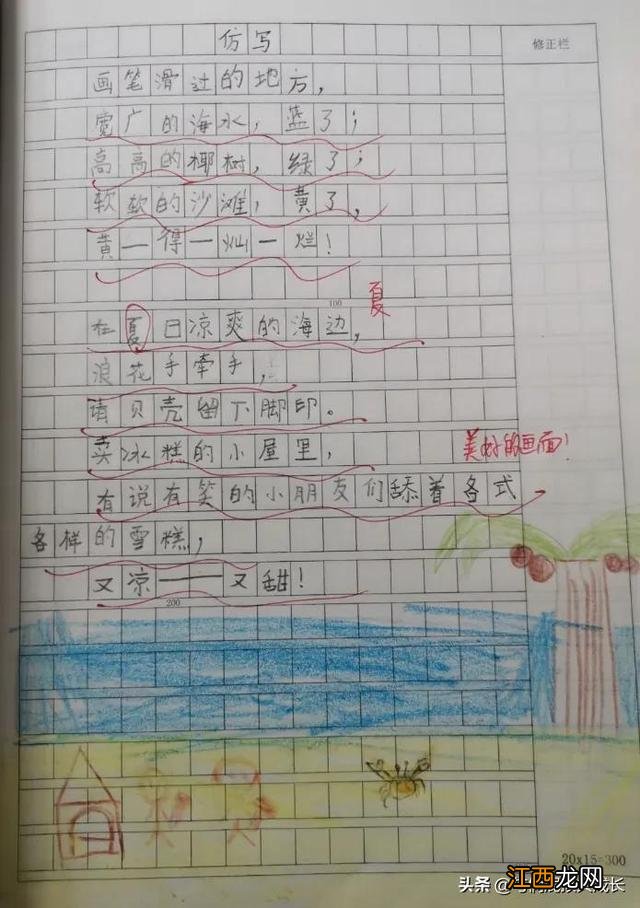 仿写
修正栏
画笔滑过的地方，
宽广的海水，蓝了；
高高的椰树，绿了；
软软的沙滩，黄了，
黄一得一灿一烂！
100
夏
在夏日凉爽的海边，
浪花手牵手，
请贝壳留下脚印。
卖冰糕的小屋里，
美好的画面！
有说有笑的小朋友们舔着各式
各样的雪糕，
又凉——又甜！
200
20x15=300
头条
江西龙网
成长